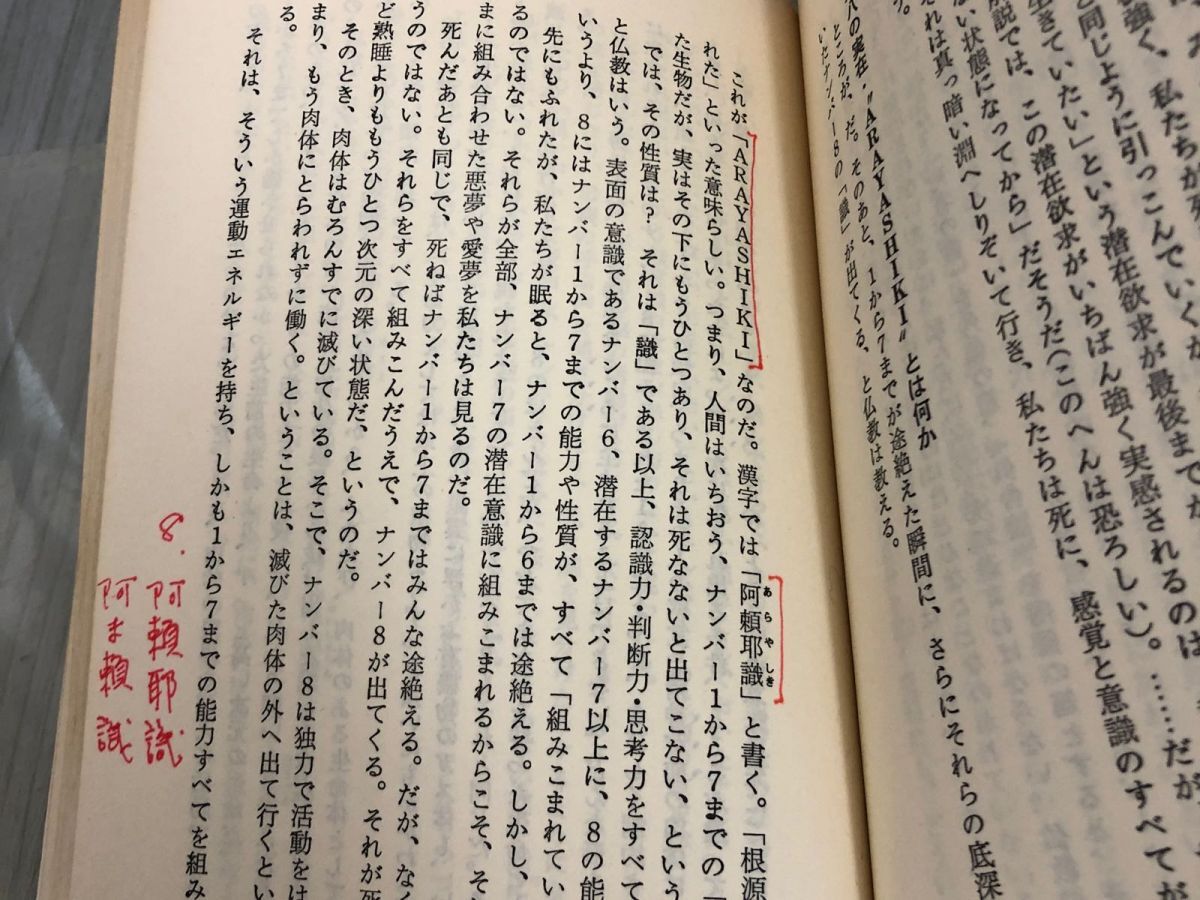 強く、私たちが死
と同じように引っこんでいくが
生きていたい」という潜在欲求が最後まで
説では、この潜在欲求がいちばん強く実感されるのは
ない状態になってから」だそうだ(このへんは恐ろしい)。……だが、
それは真っ暗い淵へしりぞいて行き、私たちは死に、感覚と意識のすべてが
う。
八の実在・"ARAYASHIKI"とは何か
ところが、だ。そのあと、1から7までが途絶えた瞬間に、さらにそれらの底深
いたナンバー8の「識」が出てくる、と仏教は教える。
これが「ARAYASHIKI」なのだ。漢字では「阿頼耶識」と書く。「根源
あらやしき
れた」といった意味らしい。つまり、人間はいちおう、ナンバー1から7までの「
た生物だが、実はその下にもうひとつあり、それは死なないと出てこない、という
では、その性質は? それは「識」である以上、認識力・判断力・思考力をすべて
と仏教はいう。表面の意識であるナンバー6、潜在するナンバー7以上に、8の能
いうより、8にはナンバー1から7までの能力や性質が、すべて「組みこまれてい
先にもふれたが、私たちが眠ると、ナンバー1から6までは途絶える。しかし、
るのではない。それらが全部、ナンバー7の潜在意識に組みこまれるからこそ、そ
まに組み合わせた悪夢や愛夢を私たちは見るのだ。
死んだあとも同じで、死ねばナンバー1から7まではみんな途絶える。だが、なく
うのではない。それらをすべて組みこんだうえで、ナンバー8が出てくる。それが死
ど熟睡よりももうひとつ次元の深い状態だ、というのだ。
そのとき、肉体はむろんすでに滅びている。そこで、ナンバー8は独力で活動をは
まり、もう肉体にとらわれずに働く。ということは、滅びた肉体の外へ出て行くとい
る。
それは、そういう運動エネルギーを持ち、しかも1から7までの能力すべてを組み
8. 阿頼耶識
阿末頼識